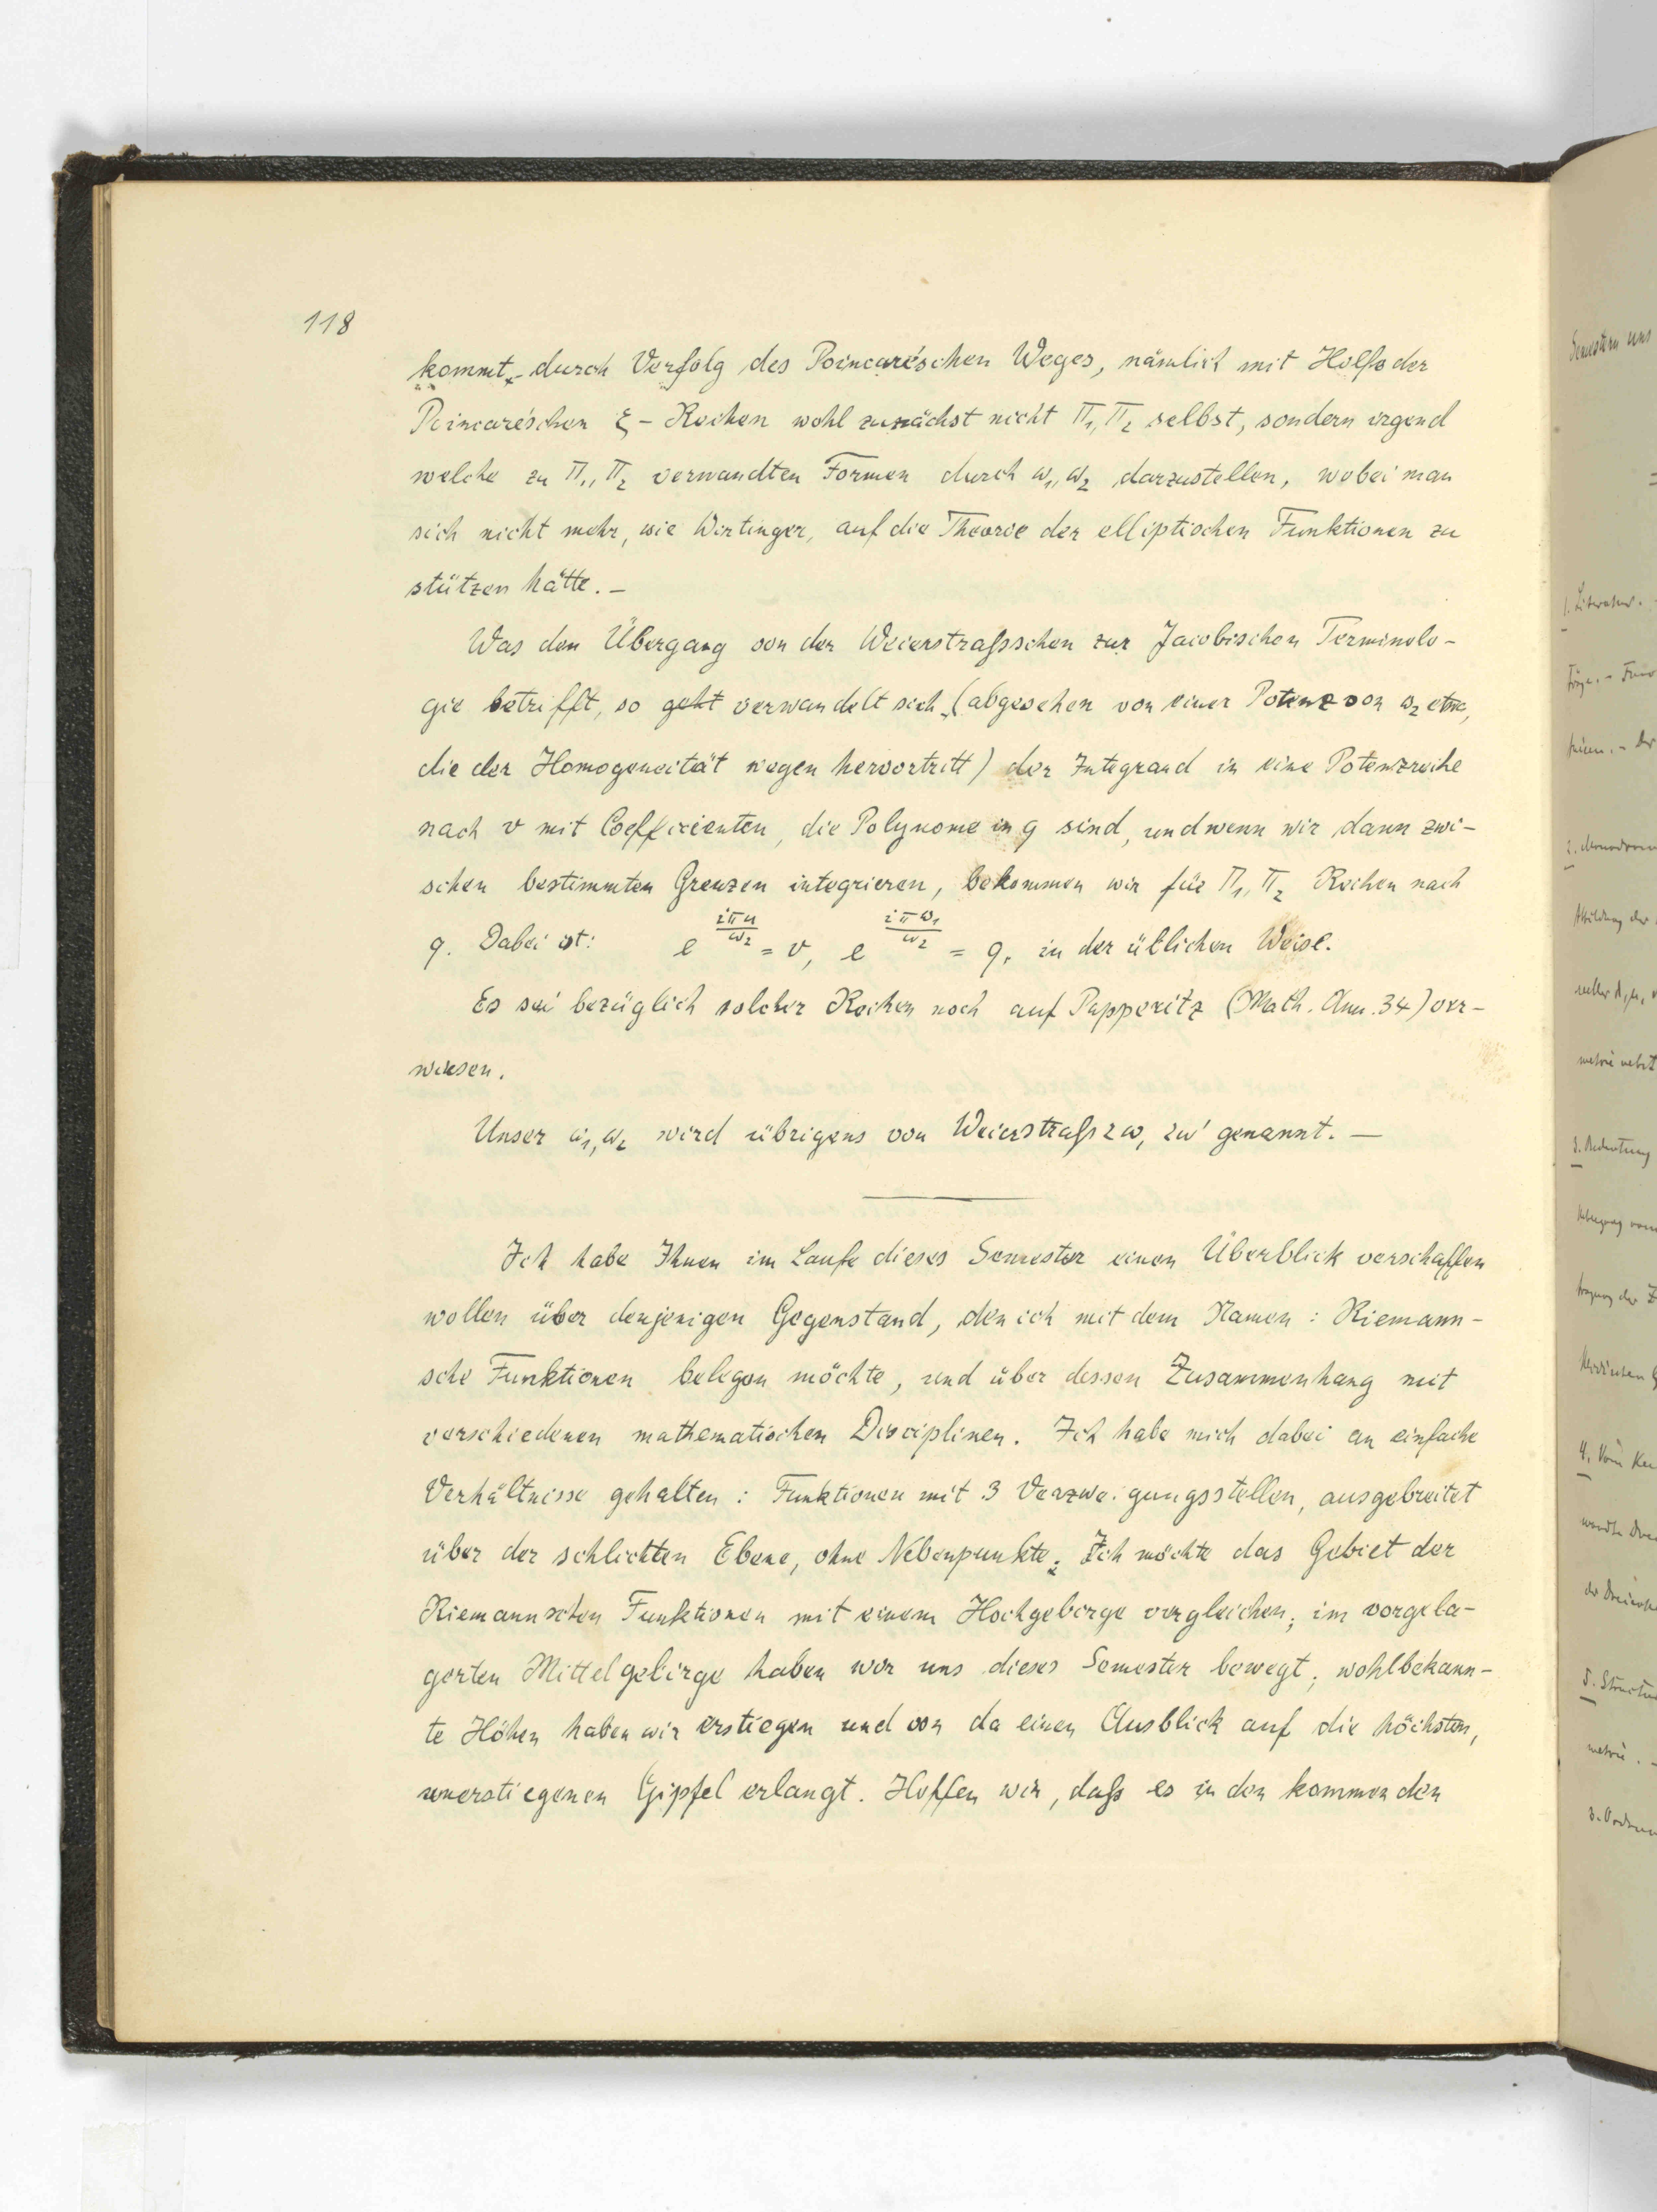 118
kommt, durch Verfolg des Poincaré'schen Weges, nämlich mit Hülfe der
Poincaré'schen ξ-Reihen wohl zunächst nicht Π₁, Π₂ selbst, sondern irgend
welche zu Π₁, Π₂ verwandten Formen durch ω₁, ω₂ darzustellen, wobei man
sich nicht mehr, wie Wirtinger, auf die Theorie der elliptischen Funktionen zu
stützen hätte. –
Was den Übergang von der Weierstraßschen zur Jacobischen Terminolo-
gie betrifft, so geht verwandelt sich (abgesehen von einer Potenz von ω₂ etwa,
die der Homogeneität wegen hervortritt) der Integrand in eine Potenzreihe
nach v mit Coefficienten, die Polynome in q sind, und wenn wir dann zwi-
schen bestimmten Grenzen integrieren, bekommen wir für Π₁, Π₂ Reihen nach
q. Dabei ist: e^{iπu/ω₂} = v, e^{iπω₁/ω₂} = q, in der üblichen Weise.
Es sei bezüglich solcher Reihen noch auf Papperitz (Math. Ann. 34) ver-
wiesen.
Unser ω₁, ω₂ wird übrigens von Weierstraß 2ω, 2ω' genannt. —
Ich habe Ihnen im Laufe dieses Semester einen Überblick verschaffen
wollen über denjenigen Gegenstand, den ich mit dem Namen: Riemann-
sche Funktionen belegen möchte, und über dessen Zusammenhang mit
verschiedenen mathematischen Disciplinen. Ich habe mich dabei an einfache
Verhältnisse gehalten: Funktionen mit 3 Verzweigungsstellen, ausgebreitet
über der schlichten Ebene, ohne Nebenpunkte. Ich möchte das Gebiet der
Riemannschen Funktionen mit einem Hochgebirge vergleichen; im vorgela-
gerten Mittelgebirge haben wir uns dieses Semester bewegt; wohlbekann-
te Höhen haben wir erstiegen und von da einen Ausblick auf die höchsten,
unerstiegenen Gipfel erlangt. Hoffen wir, daß es in den kommenden
Semestern uns
1. Literatur.
3. Bedeutung